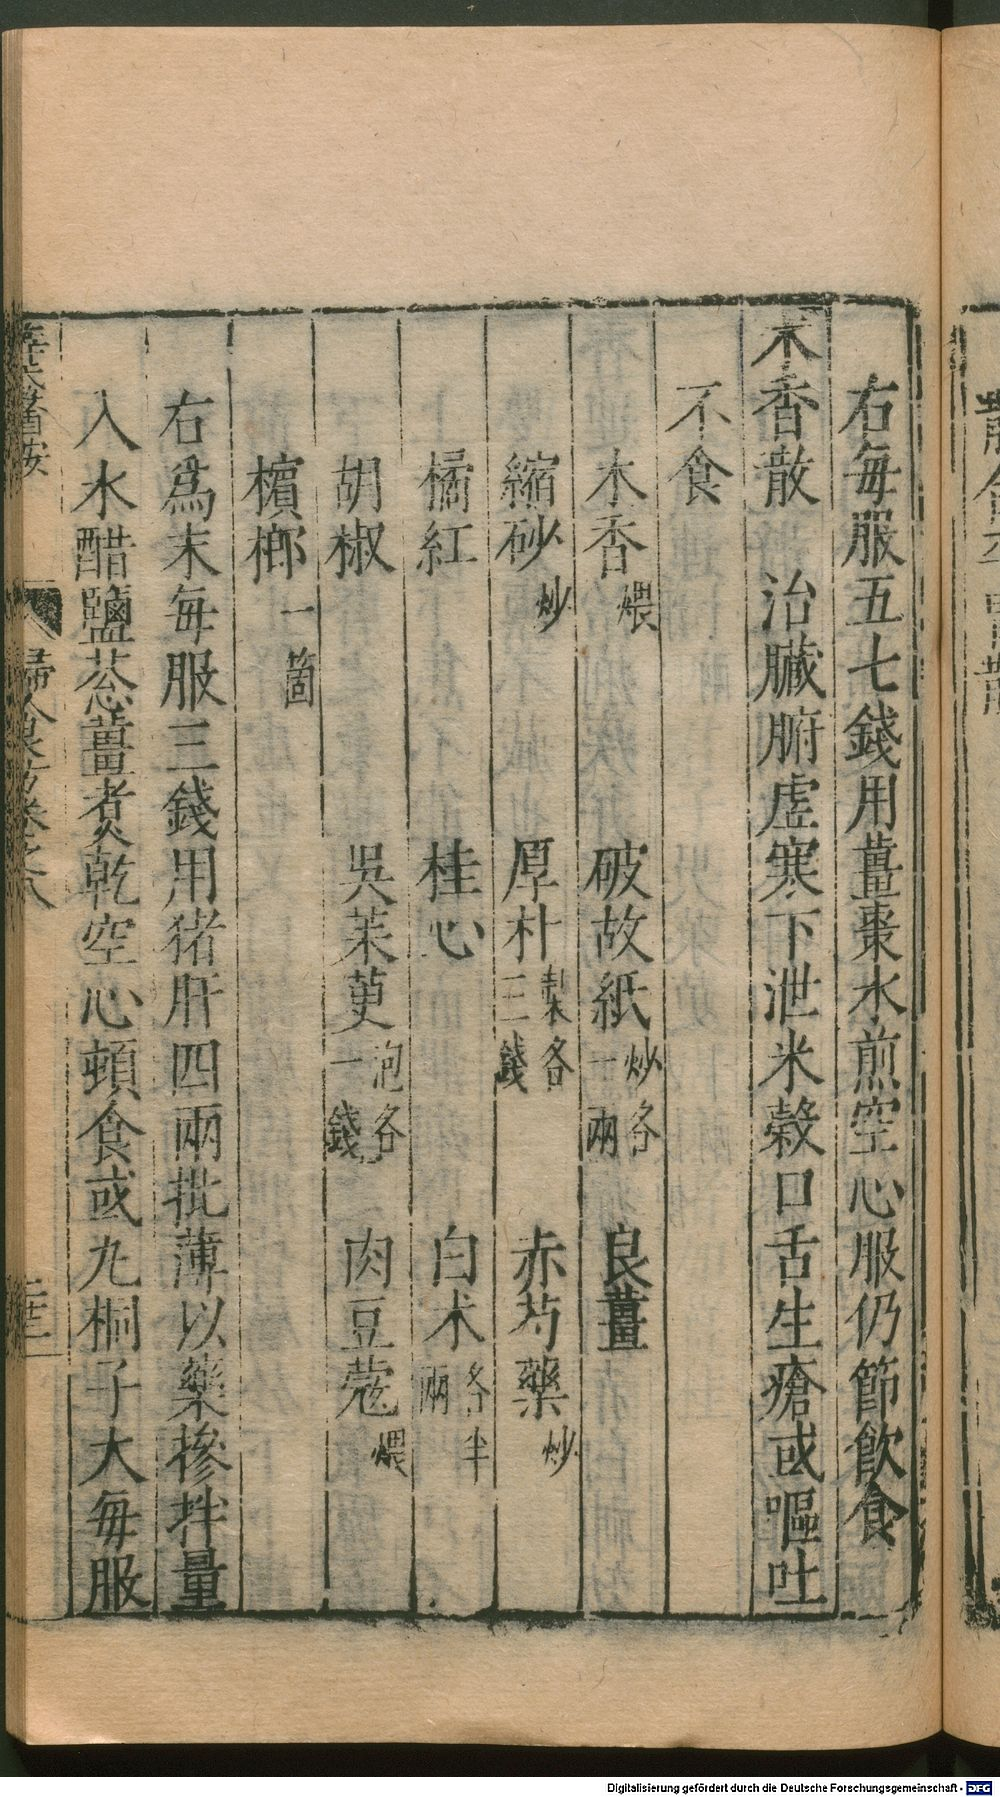 右每服五七錢用薑棗水煎空心服仍節飲食
木香散　治臟腑虛寒下泄米穀口舌生瘡或嘔吐
不食
木香煨　破故紙炒各一兩　良薑
縮砂炒　厚朴製各三錢　赤芍藥炒
橘紅　桂心　白朮各半兩
胡椒　吳茱萸泡各一錢　肉豆蔻煨
檳榔一箇
右爲末每服三錢用猪肝四兩批薄以藥摻拌量
入水醋鹽葱薑煮乾空心頓食或丸桐子大每服
薛氏醫按　婦人良方卷之八　二十三
Digitalisierung gefördert durch die Deutsche Forschungsgemeinschaft - DFG